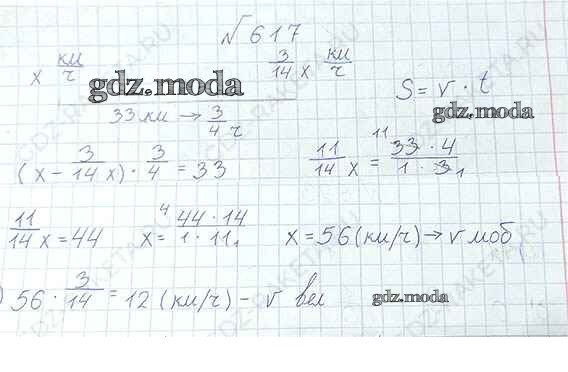 №617
x км/ч 3/14 x км/ч
gdz.moda
S = v · t
gdz.moda
33 км → 3/4 ч
(x - 3/14 x) · 3/4 = 33 11/14 x = 11 33 · 4 / 1 · 3 1
11/14 x = 44 x = 4 44 · 14 / 1 · 11 1 x = 56 (км/ч) → v моб
) 56 · 3/14 = 12 (км/ч) - v вел
gdz.moda
GDZ-RAKETA.RU